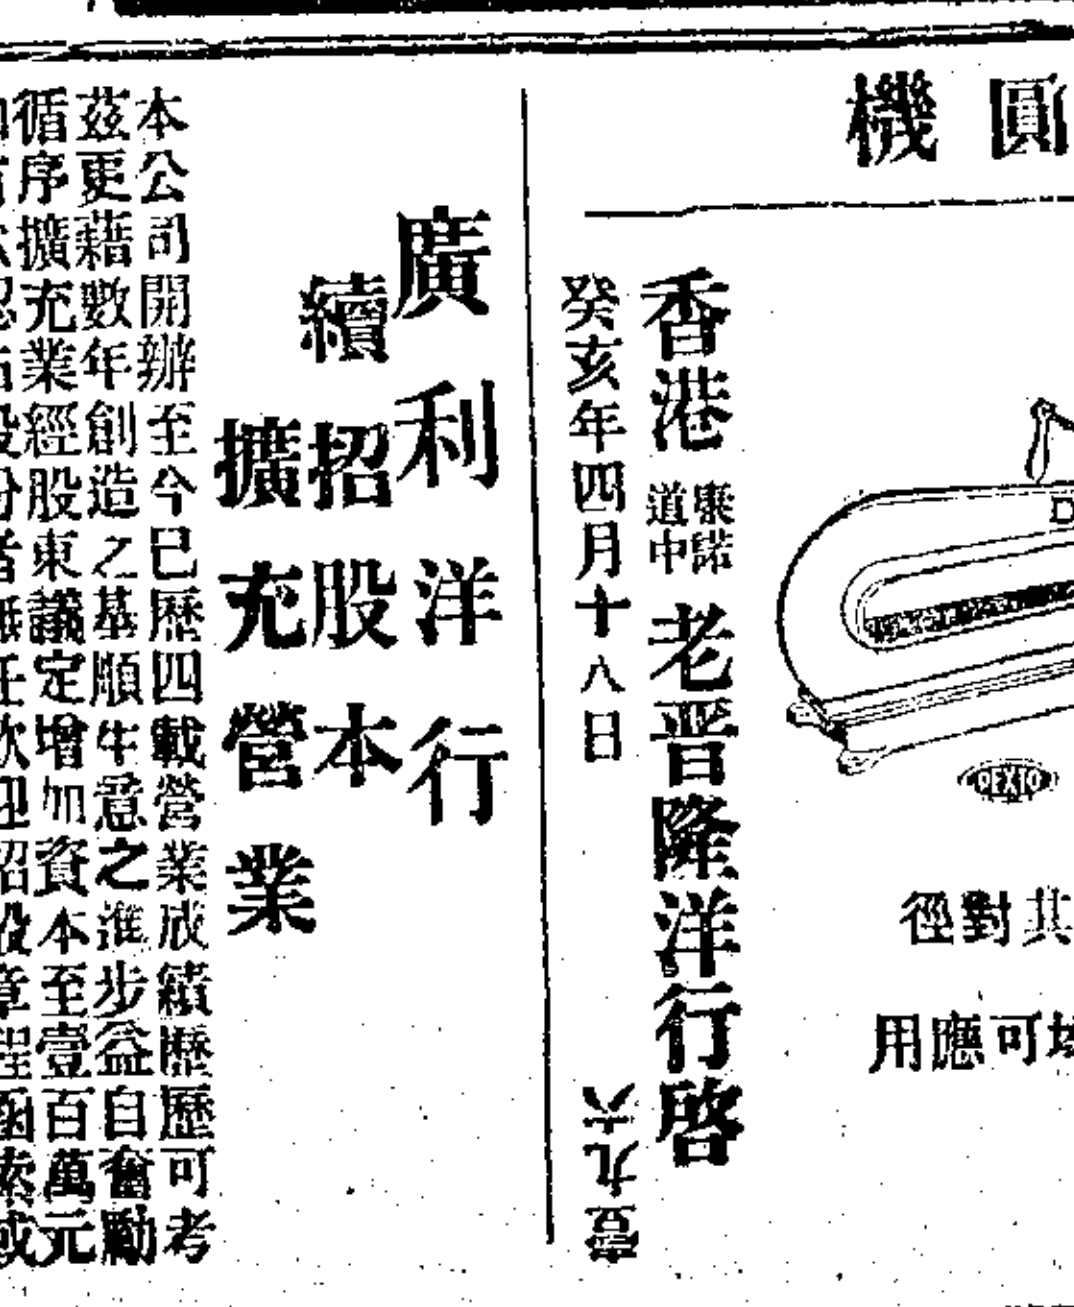 機圓
徑對其
用應可
REXIO
香港
康諾
道中
老晋隆洋行啓
癸亥年四月十八日
廣利洋行
續招股本
擴充營業
本公司開辦至今已歷四載營業成績歷歷可考
茲更藉數年創造之基順生意之進步益自奮勵
循序擴充業經股東議定增加資本至壹百萬元